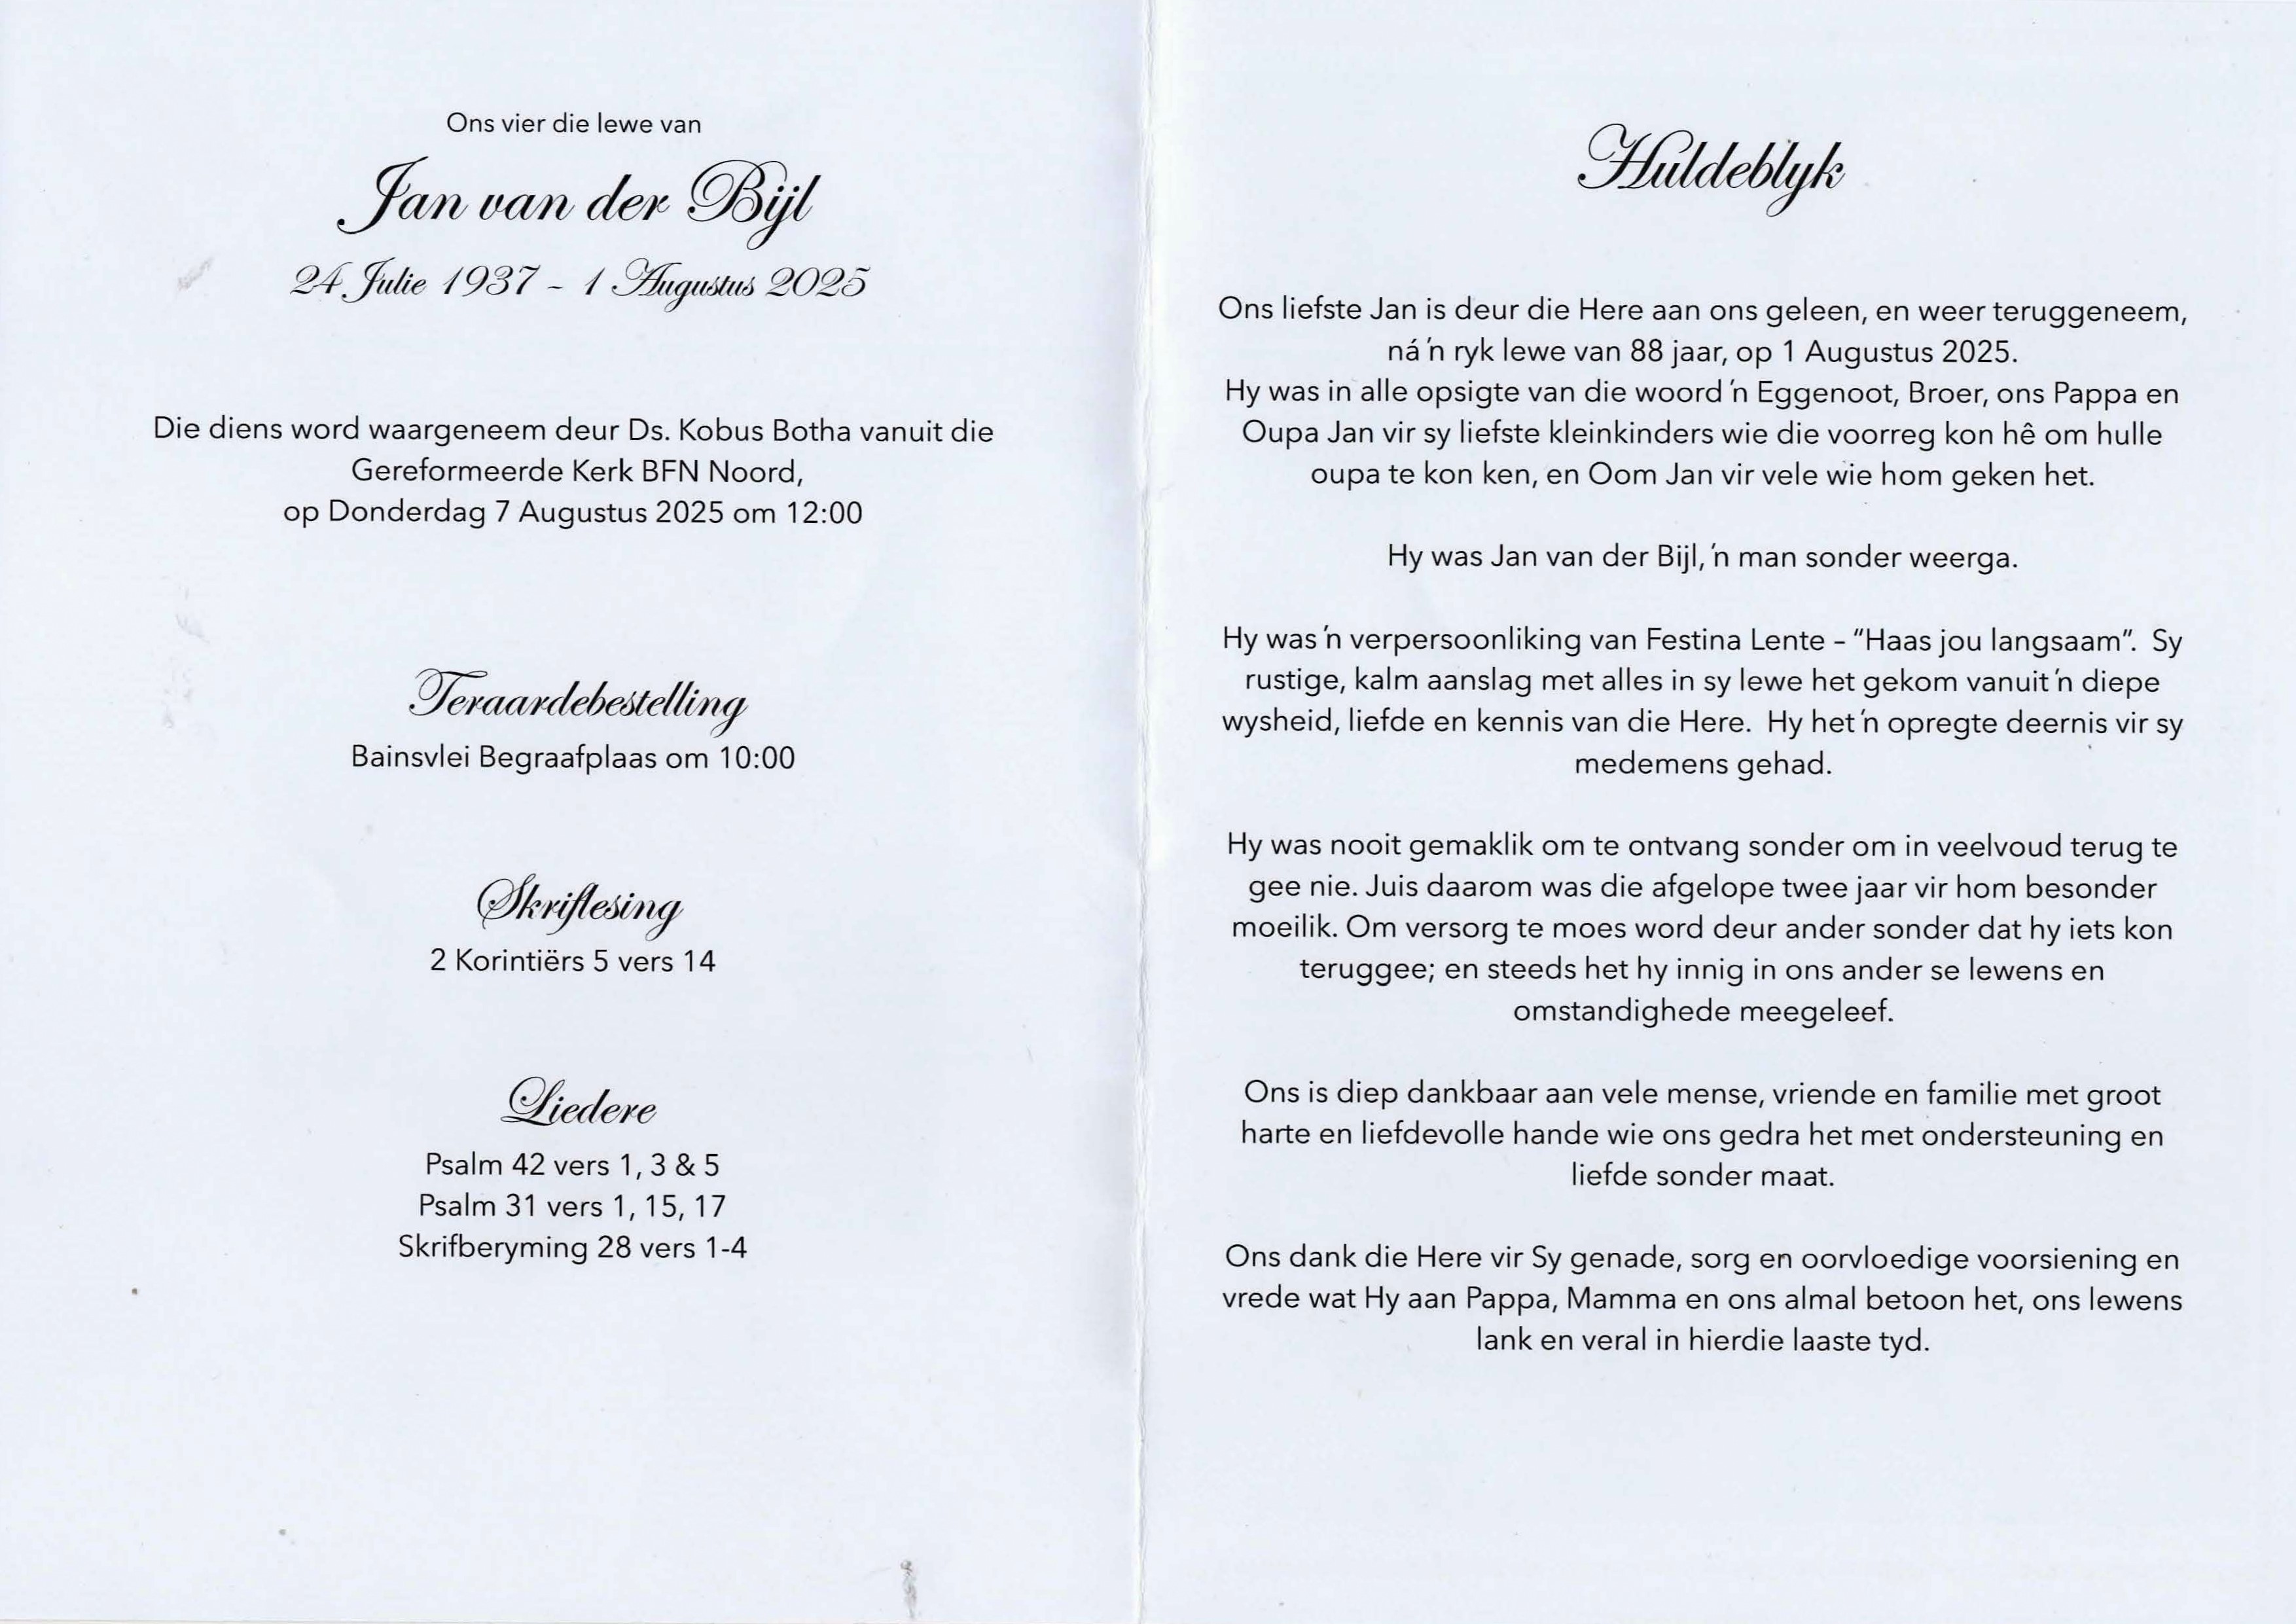 Ons vier die lewe van
Jan van der Bijl
24 Julie 1937 - 1 Augustus 2025
Die diens word waargeneem deur Ds. Kobus Botha vanuit die
Gereformeerde Kerk BFN Noord,
op Donderdag 7 Augustus 2025 om 12:00
Teraardebestelling
Bainsvlei Begraafplaas om 10:00
Skriflesing
2 Korintiërs 5 vers 14
Liedere
Psalm 42 vers 1, 3 & 5
Psalm 31 vers 1, 15, 17
Skrifberyming 28 vers 1-4
Huldeblyk
Ons liefste Jan is deur die Here aan ons geleen, en weer teruggeneem,
ná 'n ryk lewe van 88 jaar, op 1 Augustus 2025.
Hy was in alle opsigte van die woord 'n Eggenoot, Broer, ons Pappa en
Oupa Jan vir sy liefste kleinkinders wie die voorreg kon hê om hulle
oupa te kon ken, en Oom Jan vir vele wie hom geken het.
Hy was Jan van der Bijl, 'n man sonder weerga.
Hy was 'n verpersoonliking van Festina Lente - “Haas jou langsaam”. Sy
rustige, kalm aanslag met alles in sy lewe het gekom vanuit 'n diepe
wysheid, liefde en kennis van die Here. Hy het 'n opregte deernis vir sy
medemens gehad.
Hy was nooit gemaklik om te ontvang sonder om in veelvoud terug te
gee nie. Juis daarom was die afgelope twee jaar vir hom besonder
moeilik. Om versorg te moes word deur ander sonder dat hy iets kon
teruggee; en steeds het hy innig in ons ander se lewens en
omstandighede meegeleef.
Ons is diep dankbaar aan vele mense, vriende en familie met groot
harte en liefdevolle hande wie ons gedra het met ondersteuning en
liefde sonder maat.
Ons dank die Here vir Sy genade, sorg en oorvloedige voorsiening en
vrede wat Hy aan Pappa, Mamma en ons almal betoon het, ons lewens
lank en veral in hierdie laaste tyd.